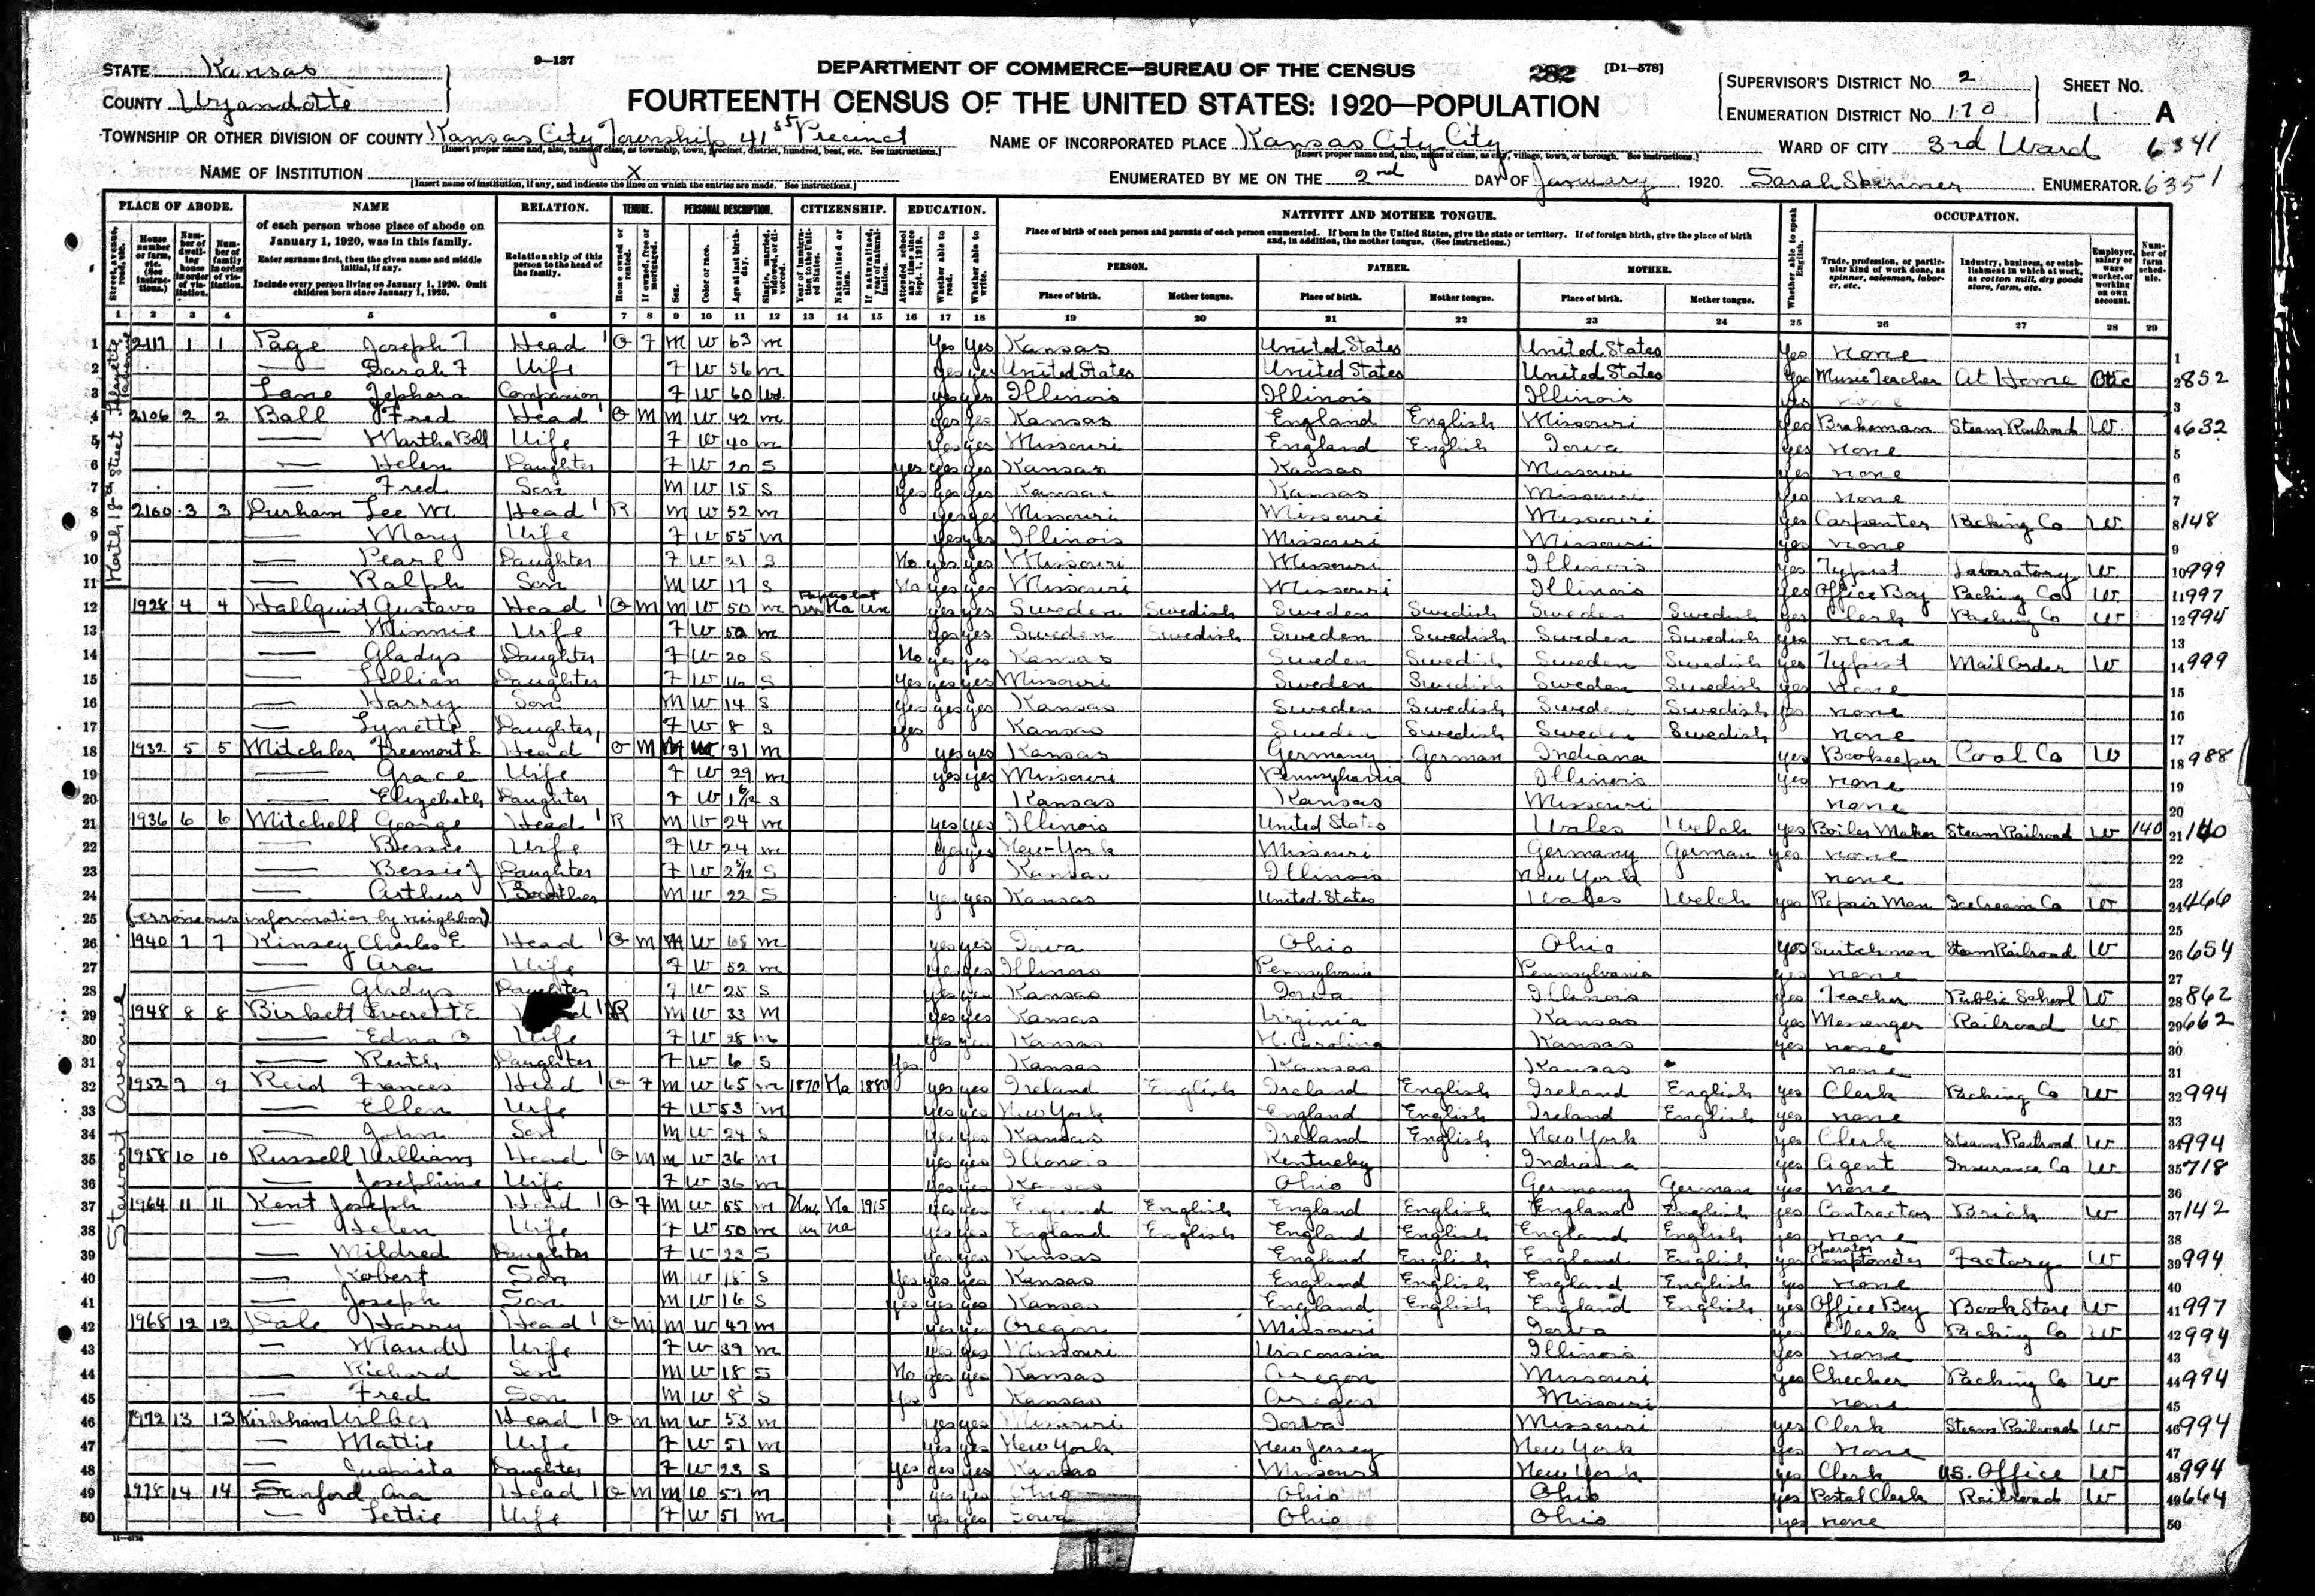 9—137
DEPARTMENT OF COMMERCE—BUREAU OF THE CENSUS
282 [D1—578]
STATE Kansas
COUNTY Wyandotte
FOURTEENTH CENSUS OF THE UNITED STATES: 1920—POPULATION
SUPERVISOR'S DISTRICT No. 2
ENUMERATION DISTRICT No. 170
SHEET No. 1 A
TOWNSHIP OR OTHER DIVISION OF COUNTY Kansas City Township 41st Precinct
[Insert proper name and, also, name of class, as township, town, precinct, district, hundred, beat, etc. See instructions.]
NAME OF INCORPORATED PLACE Kansas City City
[Insert proper name and, also, name of class, as city, village, town, or borough. See instructions.]
WARD OF CITY 3rd Ward 6341
NAME OF INSTITUTION X
[Insert name of institution, if any, and indicate the lines on which the entries are made. See instructions.]
ENUMERATED BY ME ON THE 2nd DAY OF January 1920. Sarah ENUMERATOR. 6351
PLACE OF ABODE. NAME RELATION. TENURE. PERSONAL DESCRIPTION. CITIZENSHIP. EDUCATION. NATIVITY AND MOTHER TONGUE. OCCUPATION.
of each person whose place of abode on January 1, 1920, was in this family.
Enter surname first, then the given name and middle initial, if any.
Include every person living on January 1, 1920. Omit children born since January 1, 1920.
Relationship of this person to the head of the family.
Place of birth of each person and parents of each person enumerated. If born in the United States, give the state or territory. If of foreign birth, give the place of birth and, in addition, the mother tongue. (See instructions.)
PERSON. FATHER. MOTHER.
Place of birth. Mother tongue. Place of birth. Mother tongue. Place of birth. Mother tongue.
1 2 3 4 5 6 7 8 9 10 11 12 13 14 15 16 17 18 19 20 21 22 23 24 25 26 27 28 29
1 2117 1 1 Page Joseph T Head O F M W 63 M Yes Yes Kansas United States United States Yes none
2 — Sarah F Wife F W 56 M yes yes United States United States United States Yes Music Teacher At Home 852
3 Lane Companion F W 60 Wd yes yes Illinois Illinois Illinois yes none
4 2106 2 2 Ball Fred Head O M M W 42 M yes yes Kansas England English Missouri yes Brakeman Steam Railroad W 632
5 — Martha Bell Wife F W 40 M yes yes Missouri England English Iowa yes none
6 — Helen Daughter F W 20 S yes yes yes Kansas Kansas Missouri yes none
7 — Fred Son M W 15 S yes yes yes Kansas Kansas Missouri yes none
8 2160 3 3 Durham Lee M. Head R M W 52 M yes yes Missouri Missouri Missouri yes Carpenter Packing Co W 148
9 — Mary Wife F W 55 M yes yes Illinois Missouri Missouri yes none
10 — Pearl Daughter F W 21 S No yes yes Missouri Missouri Illinois yes Typist Laboratory W 999
11 — Ralph Son M W 17 S Na yes yes Missouri Missouri Illinois yes Office Boy Packing Co W 997
12 1928 4 4 Hallquist Gustave Head O M M W 50 M un Na un yes yes Sweden Swedish Sweden Swedish Sweden Swedish yes Clerk Packing Co W 994
13 — Minnie Wife F W 50 M yes yes Sweden Swedish Sweden Swedish Sweden Swedish yes none
14 — Gladys Daughter F W 20 S No yes yes Kansas Sweden Swedish Sweden Swedish yes Typist Mail Order W 999
15 — Lillian Daughter F W 16 S yes yes yes Missouri Sweden Swedish Sweden Swedish yes none
16 — Harry Son M W 14 S yes yes yes Kansas Sweden Swedish Sweden Swedish yes none
17 — Lynette Daughter F W 8 S yes Kansas Sweden Swedish Sweden Swedish none
18 1932 5 5 Mitchler Freemont L Head O M M W 31 M yes yes Kansas Germany German Indiana yes Bookeeper Coal Co W 988
19 — Grace Wife F W 29 M yes yes Missouri Pennsylvania Illinois yes none
20 — Elizebeth Daughter F W 1 6/12 S Kansas Kansas Missouri none
21 1936 6 6 Mitchell George Head R M W 24 M yes yes Illinois United States Wales Welch yes Boiler Maker Steam Railroad W 140
22 — Bessie Wife F W 24 M yes yes New-York Missouri Germany German yes none
23 — Bessie J Daughter F W 2 5/12 S Kansas Illinois New York none
24 — Arthur Brother M W 22 S yes yes Kansas United States Wales Welch yes Repair Man Ice Cream Co W 466
25 (erroneous information by neighbor)
26 1940 7 7 Kinsey Charles E Head O M M W 68 M yes yes Iowa Ohio Ohio yes Switchman Steam Railroad W 654
27 — Ara Wife F W 52 M yes yes Illinois Pennsylvania Pennsylvania yes none
28 — Gladys Daughter F W 25 S yes yes Kansas Iowa Illinois yes Teacher Public School W 862
29 1948 8 8 Birkett Everett E R M W 33 M yes yes Kansas Virginia Kansas yes Messenger Railroad W 662
30 — Edna Wife F W 28 M yes yes Kansas N. Carolina Kansas yes none
31 — Ruth Daughter F W 6 S yes Kansas Kansas Kansas none
32 1952 9 9 Reid Frances Head O F M W 65 M 1870 Na 1880 yes yes Ireland English Ireland English Ireland English yes Clerk Packing Co W 994
33 — Ellen Wife F W 53 M yes yes New York England English Ireland English yes none
34 — John Son M W 24 S yes yes Kansas Ireland English New York yes Clerk Steam Railroad W 994
35 1958 10 10 Russell William Head O M M W 36 M yes yes Illinois Kentucky Indiana yes Agent Insurance Co W 718
36 — Josephine Wife F W 36 M yes yes Kansas Ohio Germany German yes none
37 1964 11 11 Kent Joseph Head O F M W 55 M Un Na 1915 yes yes England English England English England English yes Contractor Brick W 142
38 — Helen Wife F W 50 M un na yes yes England English England English England English yes none
39 — Mildred Daughter F W 23 S yes yes Kansas England English England English yes Operator Comptometer Factory W 994
40 — Robert Son M W 18 S yes yes yes Kansas England English England English yes none
41 — Joseph Son M W 16 S yes yes yes Kansas England English England English yes Office Boy Book Store W 997
42 1968 12 12 Dale Harry Head O M M W 47 M yes yes Oregon Missouri Iowa yes Clerk Packing Co W 994
43 — Maude Wife F W 39 M yes yes Missouri Wisconsin Illinois yes none
44 — Richard Son M W 18 S No yes yes Kansas Oregon Missouri yes Checker Packing Co W 994
45 — Fred Son M W 8 S yes Kansas Oregon Missouri none
46 1972 13 13 Kirkham Wilber Head O M M W 53 M yes yes Missouri Iowa Missouri yes Clerk Steam Railroad W 994
47 — Mattie Wife F W 51 M yes yes New York New Jersey New York yes none
48 — Juanita Daughter F W 23 S yes yes yes Kansas Missouri New York yes Clerk U.S. Office W 994
49 1978 14 14 Sanford Ora Head O M M W 57 M yes yes Ohio Ohio Ohio yes Postal Clerk Railroad W 664
50 — Lettie Wife F W 51 M yes yes Iowa Ohio Ohio yes none
Stewart Avenue